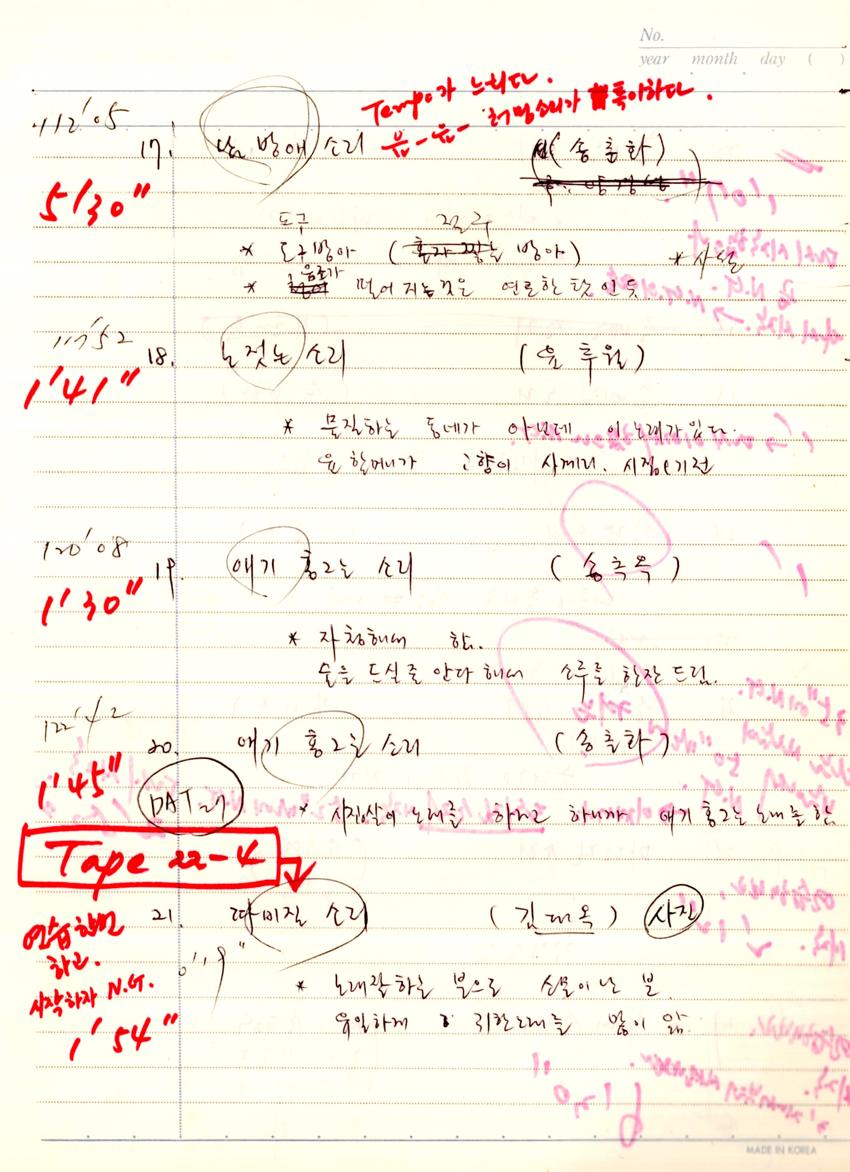 No.
year month day ( )
Tempo가 느리다.
음-음- 처리소리가 특이하다.
112'05
17. 남방애 소리 (송춘화)
5'30"
도구 
* 도구방아 ( 는 방아) * 사설
음조가
* 떨어지는것은 연로한 탓인 듯
117'52
18. 노젓는 소리 (윤후월)
1'41"
* 물질하는 동네가 아닌데 이 노래가 있다.
윤 할머니가 고향이 사께리. 시집오기전
120'08
19. 애기 홍그는 소리 (송축옥)
1'30"
* 자청해서 함.
술을 드실줄 안다 해서 소주를 한잔 드림.
122'42
20. 애기 홍그는 소리 (송출화)
1'45"
DAT27
* 노래를 하라고 하니까 애기 홍그는 노래를 함.
Tape 22-4
21. 따비질 소리 (김대옥) 사진
연습한번
하고.
시작하자 N.G.
0'19"
1'54"
* 노래잘하는 분으로 소문이 난 분.
유일하게 귀한노래를 많이 앎.
MADE IN KOREA